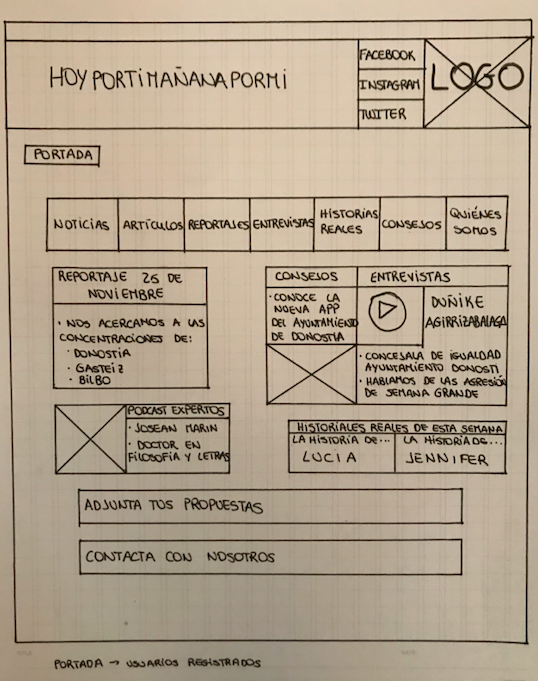 HOYPORTIMAÑANAPORMI
FACEBOOK
INSTAGRAM
TWITTER
LOGO
PORTADA
NOTICIAS
ARTÍCULOS
REPORTAJES
ENTREVISTAS
HISTORIAS
REALES
CONSEJOS
QUIÉNES
SOMOS
REPORTAJE 25 DE
NOVIEMBRE
· NOS ACERCAMOS A LAS
CONCENTRACIONES DE:
· DONOSTIA
· GASTEIZ
· BILBO
CONSEJOS
· CONOCE LA
NUEVA APP
DEL AYUNTAMIENTO
DE DONOSTIA
ENTREVISTAS
DUÑIKE
AGIRRIZABALAGA
· CONCEJALA DE IGUALDAD
AYUNTAMIENTO DONOSTI
· HABLAMOS DE LAS AGRESIÓN
DE SEMANA GRANDE
PODCAST EXPERTOS
· JOSEAN MARIN
· DOCTOR EN
FILOSOFIA Y LETRAS
HISTORIALES REALES DE ESTA SEMANA
LA HISTORIA DE...
LUCIA
LA HISTORIA DE...
JENNIFER
ADJUNTA TUS PROPUESTAS
CONTACTA CON NOSOTROS
PORTADA → USUARIOS REGISTRADOS